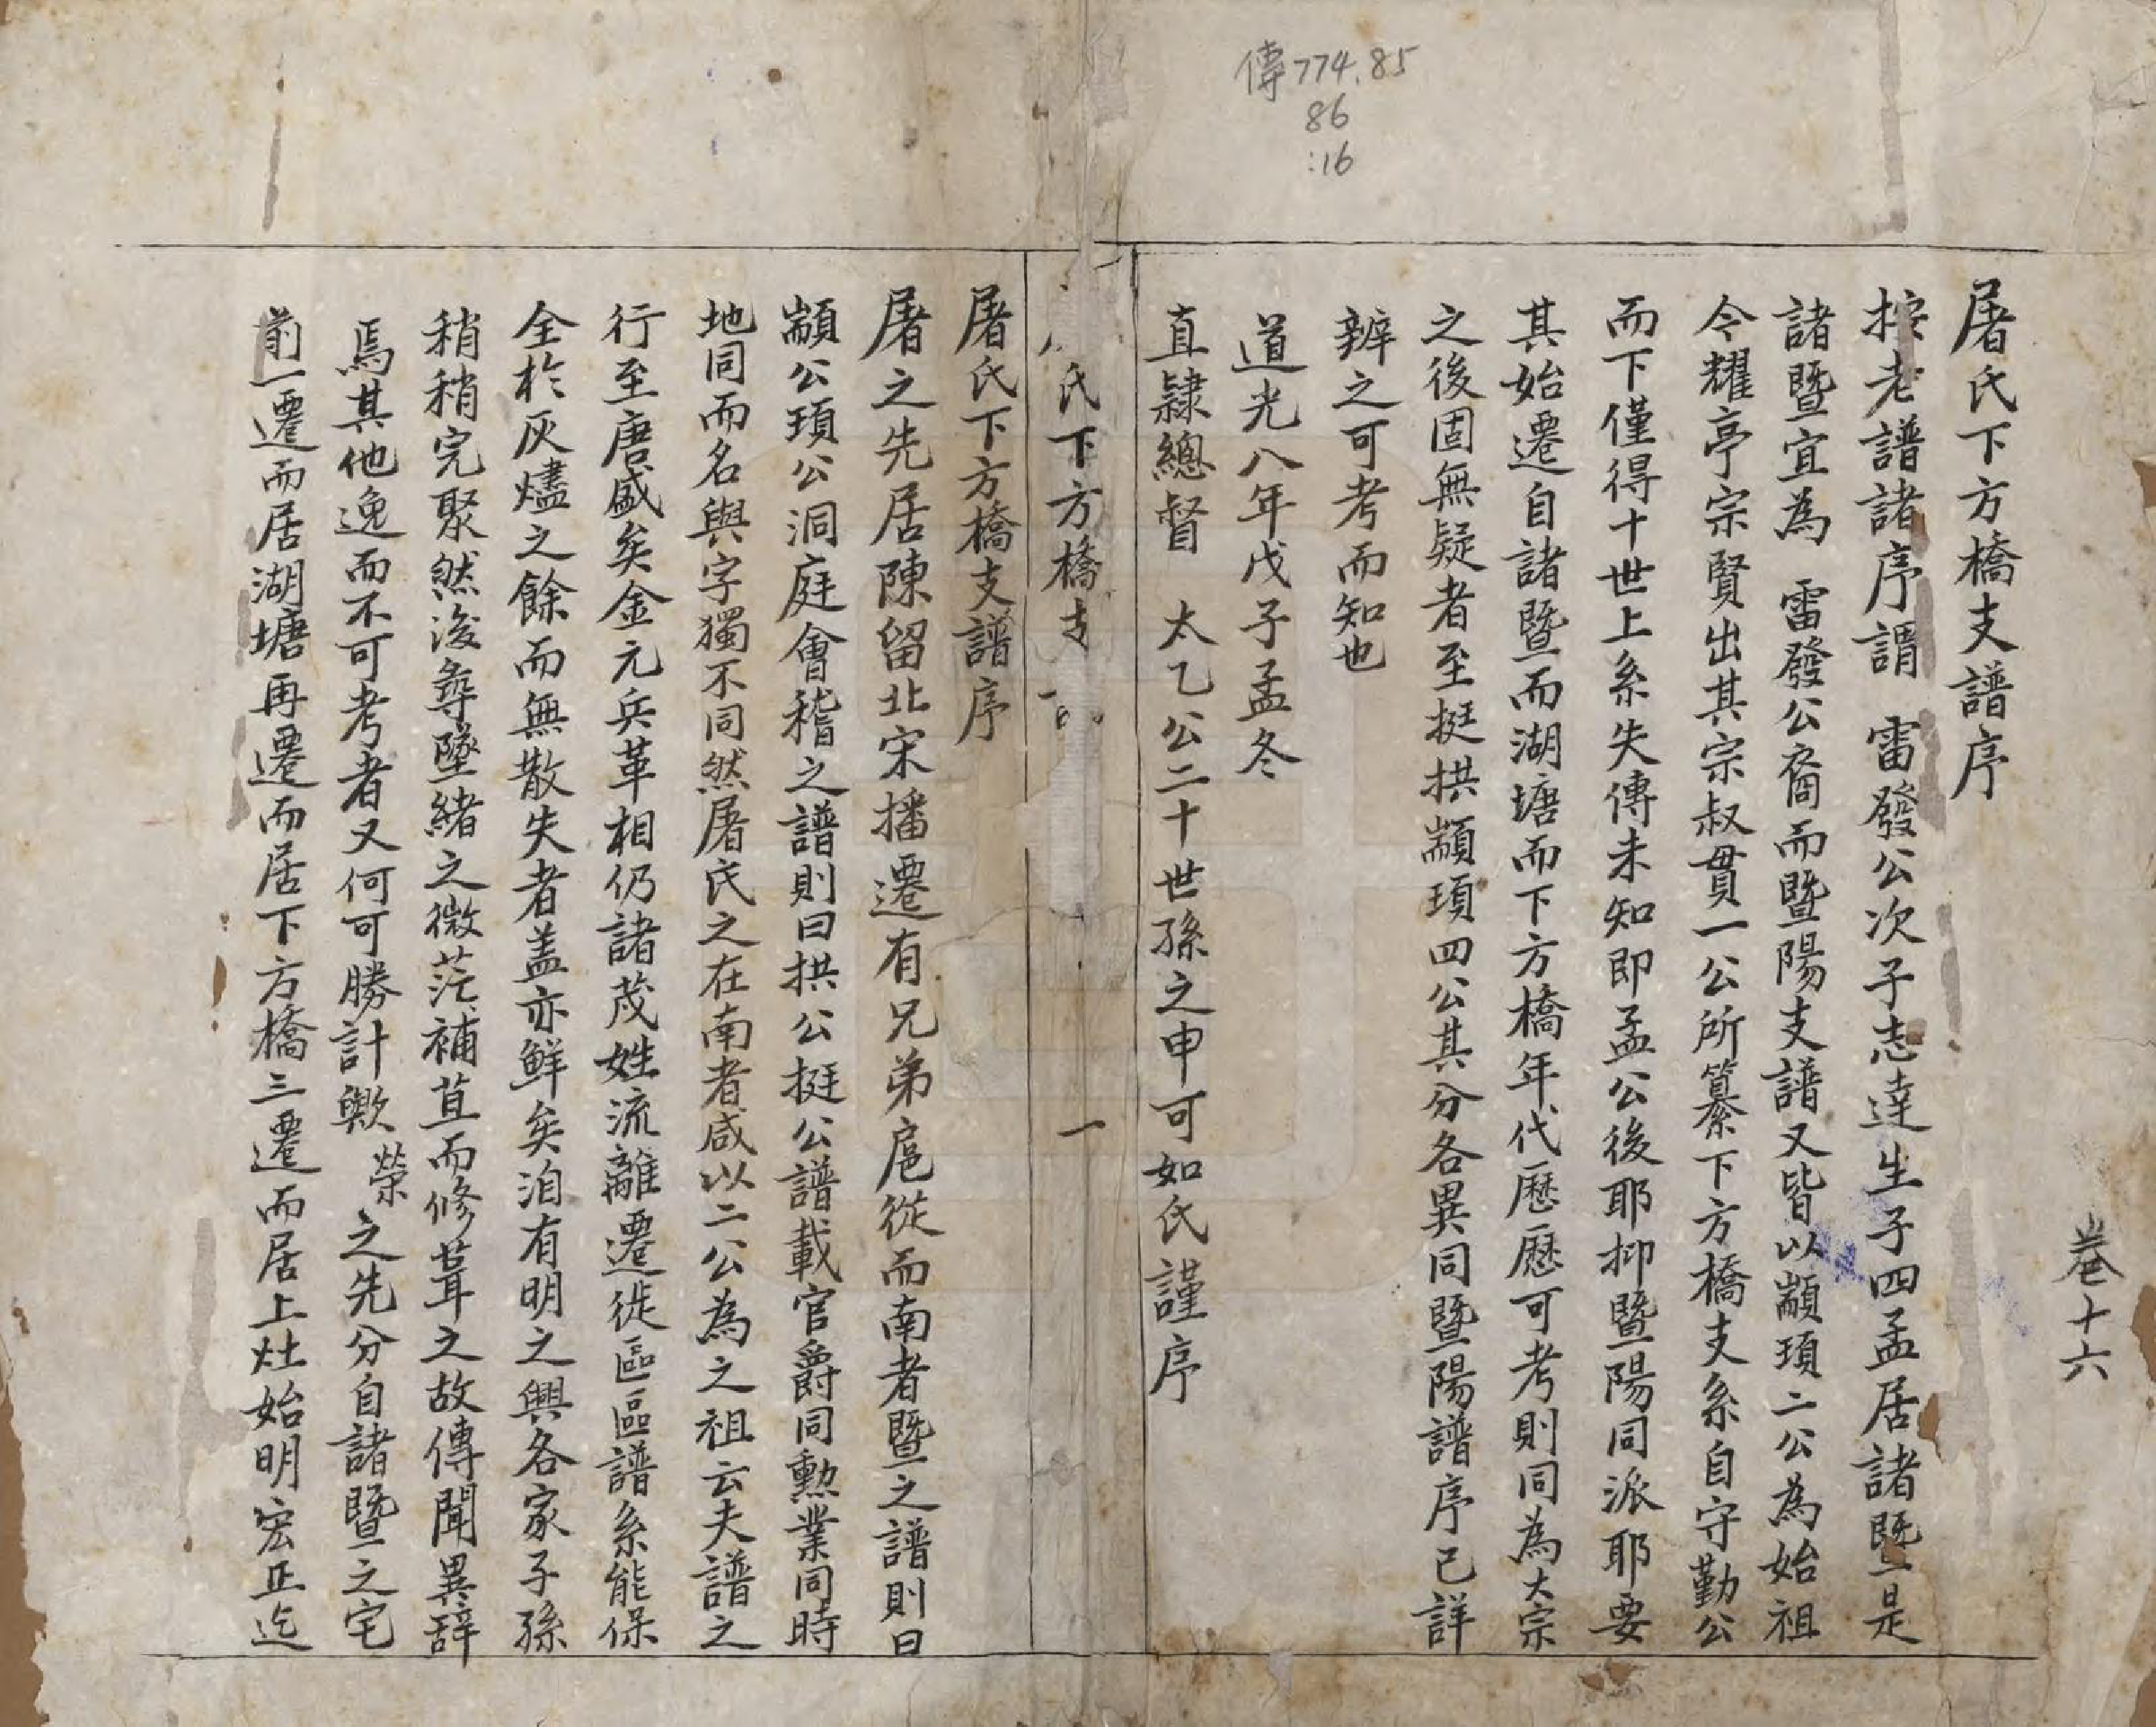 傳774.85
86
:16
卷十六
屠氏下方橋支譜序
按老譜諸序謂　雷發公次子志達生子四孟居諸暨是
諸暨宜為　雷發公裔而暨陽支譜又皆以顓頊二公為始祖
今耀亭宗賢出其宗叔貫一公所纂下方橋支系自守勤公
而下僅得十世上系失傳未知即孟公後耶抑暨陽同派耶要
其始遷自諸暨而湖塘而下方橋年代歷歷可考則同為大宗
之後固無疑者至挺拱顓頊四公其分各異同暨陽譜序已詳
辨之可考而知也
道光八年戊子孟冬
直隸總督　太乙公二十世孫之申可如氏謹序
氏下方橋支
一
屠氏下方橋支譜序
屠之先居陳留北宋播遷有兄弟扈從而南者暨之譜則曰
顓公頊公洞庭會稽之譜則曰拱公挺公譜載官爵同勳業同時
地同而名與字獨不同然屠氏之在南者咸以二公為之祖云夫譜之
行至唐盛矣金元兵革相仍諸茂姓流離遷徙區區譜系能保
全於灰燼之餘而無散失者盖亦鮮矣洎有明之興各家子孫
稍稍完聚然後尋墜緒之微茫補苴而修葺之故傳聞異辭
焉其他逸而不可考者又何可勝計歟榮之先分自諸暨之宅
前一遷而居湖塘再遷而居下方橋三遷而居上灶始明宏正迄